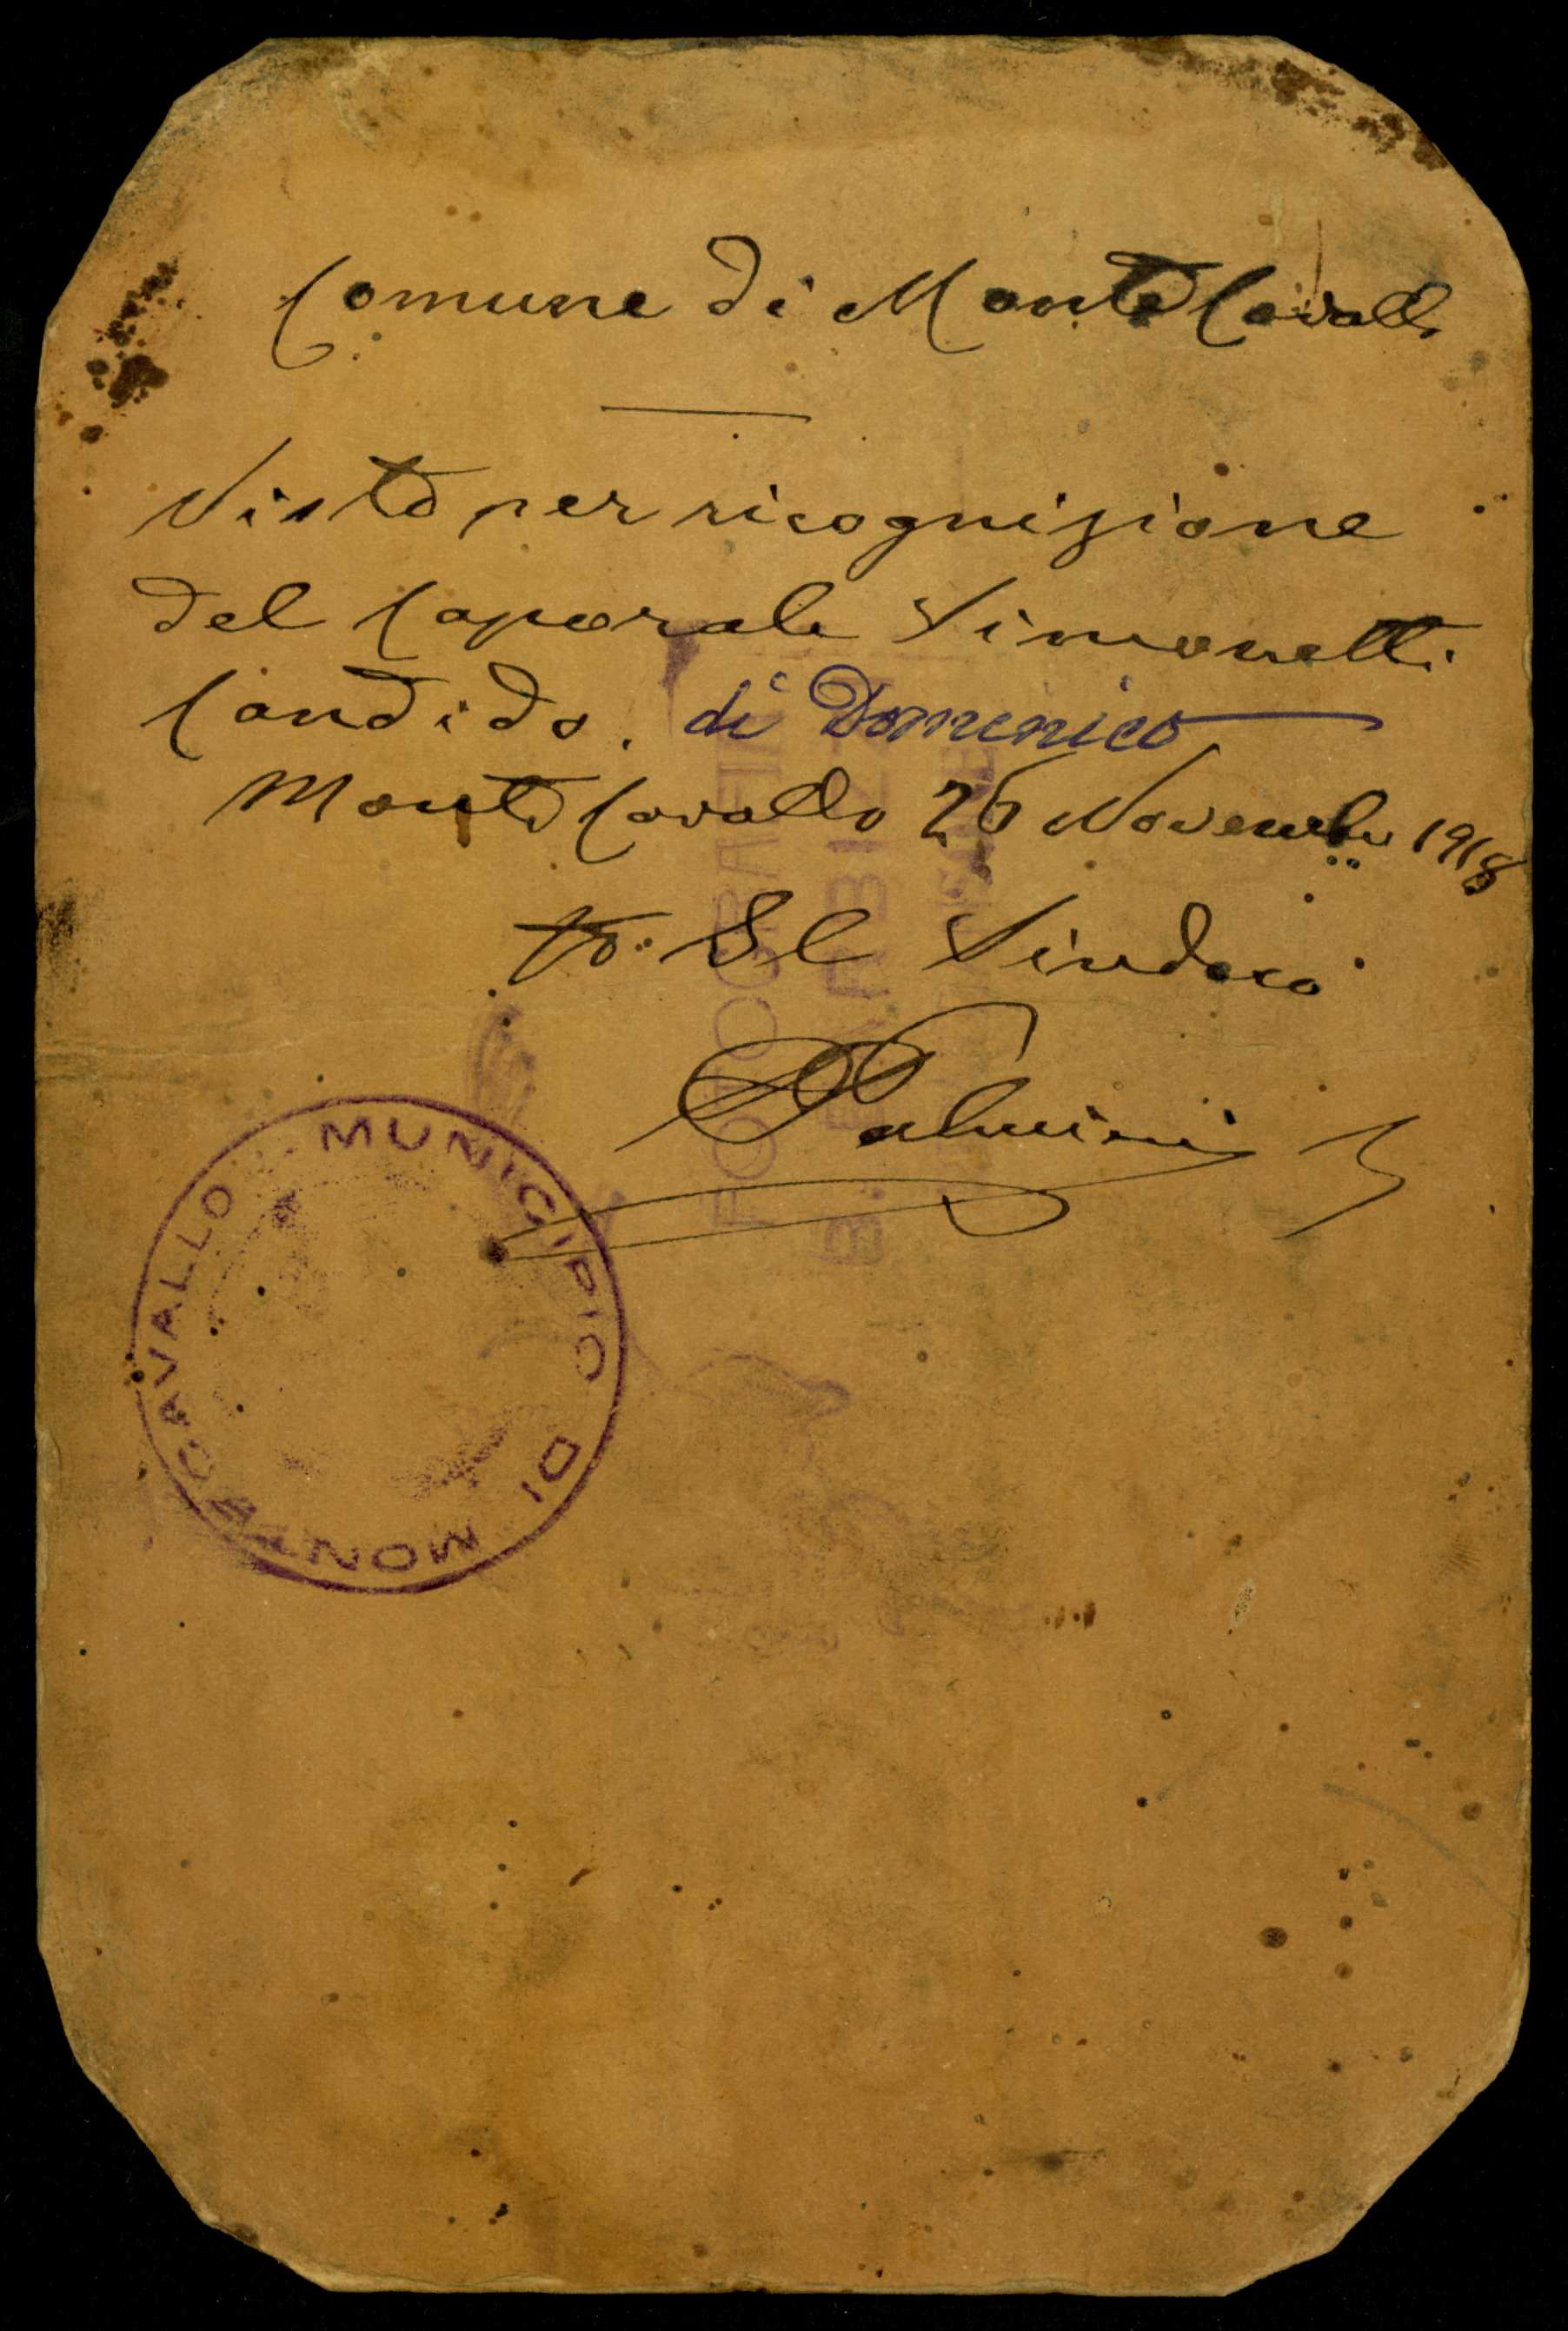 Comune di Monte Cavallo
Visto per ricognizione
del Caporale Simonetti
Candido. di Domenico
Monte Cavallo 26 Novembre 1918
Il Sindaco
MUNICIPIO DI MONTECAVALLO
FOTOGRAFIA